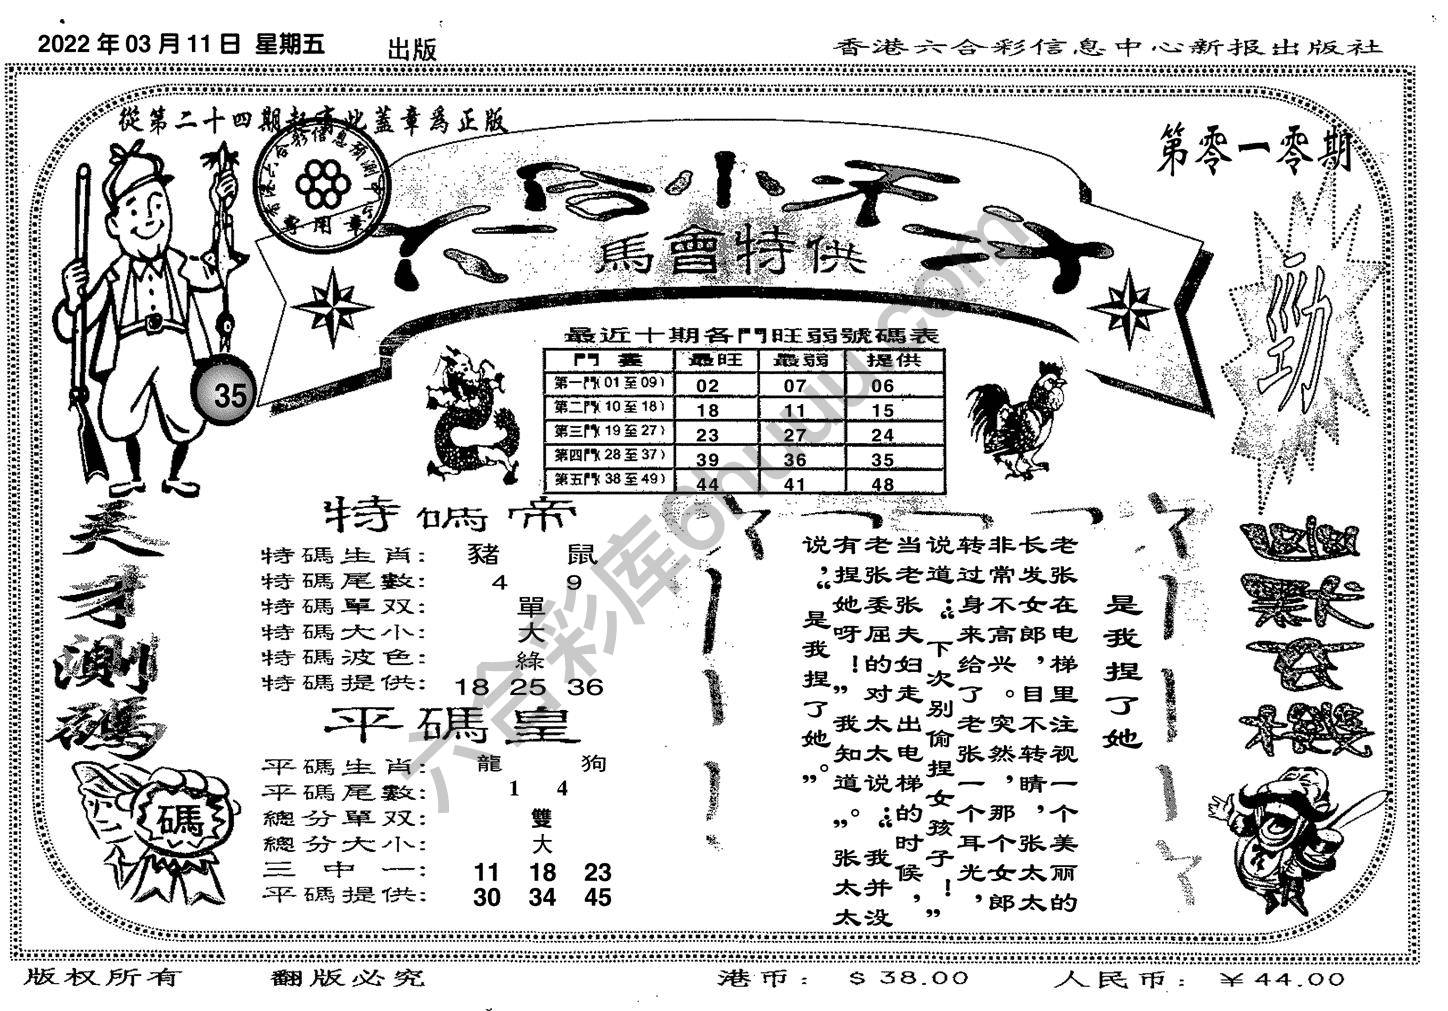 2022 年 03 月 11 日 星期五
出版
香港六合彩信息中心新报出版社
從第二十四期起有此蓋章爲正版
香港六合彩信息預測中心
專用章
第零一零期
馬會特供
勁
35
最近十期各門旺弱號碼表
門 最旺 最弱 提供
第一門(01至09) 02 07 06
第二門(10至18) 18 11 15
第三門(19至27) 23 27 24
第四門(28至37) 39 36 35
第五門(38至49) 44 41 48
天才測碼
特碼帝
特碼生肖: 豬 鼠
特碼尾數: 4 9
特碼單双: 單
特碼大小: 大
特碼波色: 綠
特碼提供: 18 25 36
平碼皇
平碼生肖: 龍 狗
平碼尾數: 1 4
總分單双: 雙
總分大小: 大
三中一: 11 18 23
平碼提供: 30 34 45
碼
是我捏了她
老张在电梯里注视一个美丽的
长发女郎,目不转睛,张太太
非常不高兴。突然,那个女郎
转过身来给了老张一个耳光,
说道:“下次别偷捏女孩子!”
当老张夫妇走出电梯的时候,
老张委屈的对太太说:“我并没
有捏她呀!”“我知道。”张太太
说,“是我捏了她。”
六合彩库6huuu.com
版权所有
翻版必究
港币: $ 38.00
人民币: ¥ 44.00